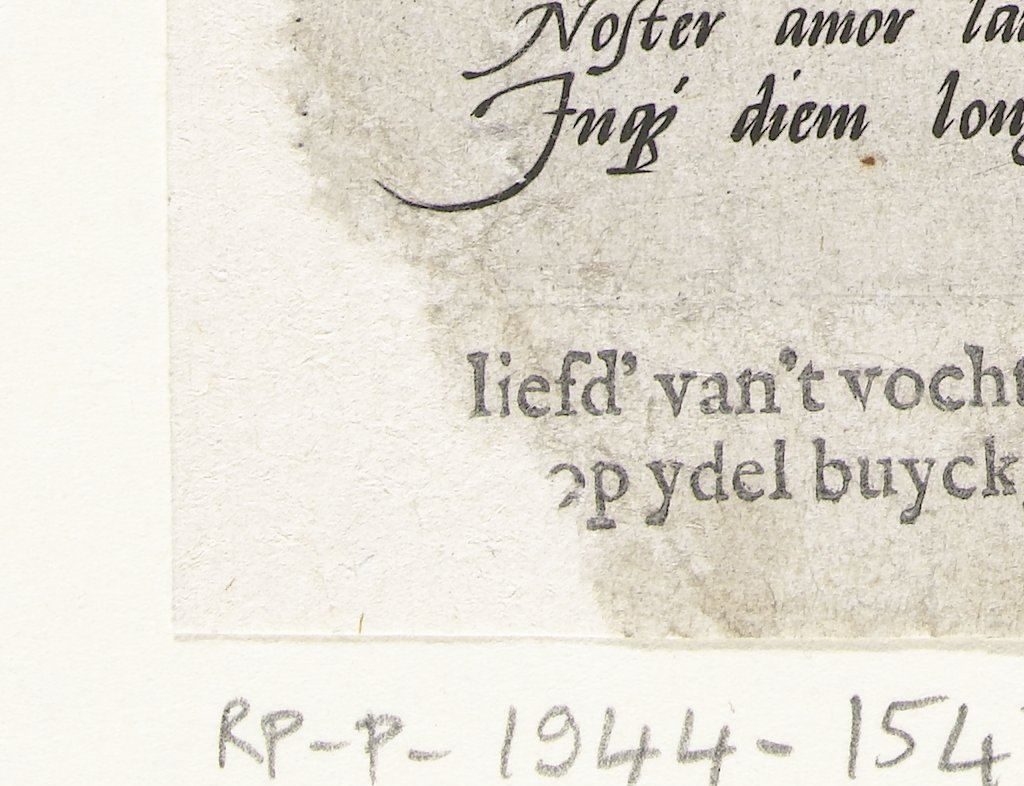 Noſter amor la
Inqꝫ diem lon
liefd' van't vocht
op ydel buyck
RP-P-1944-154